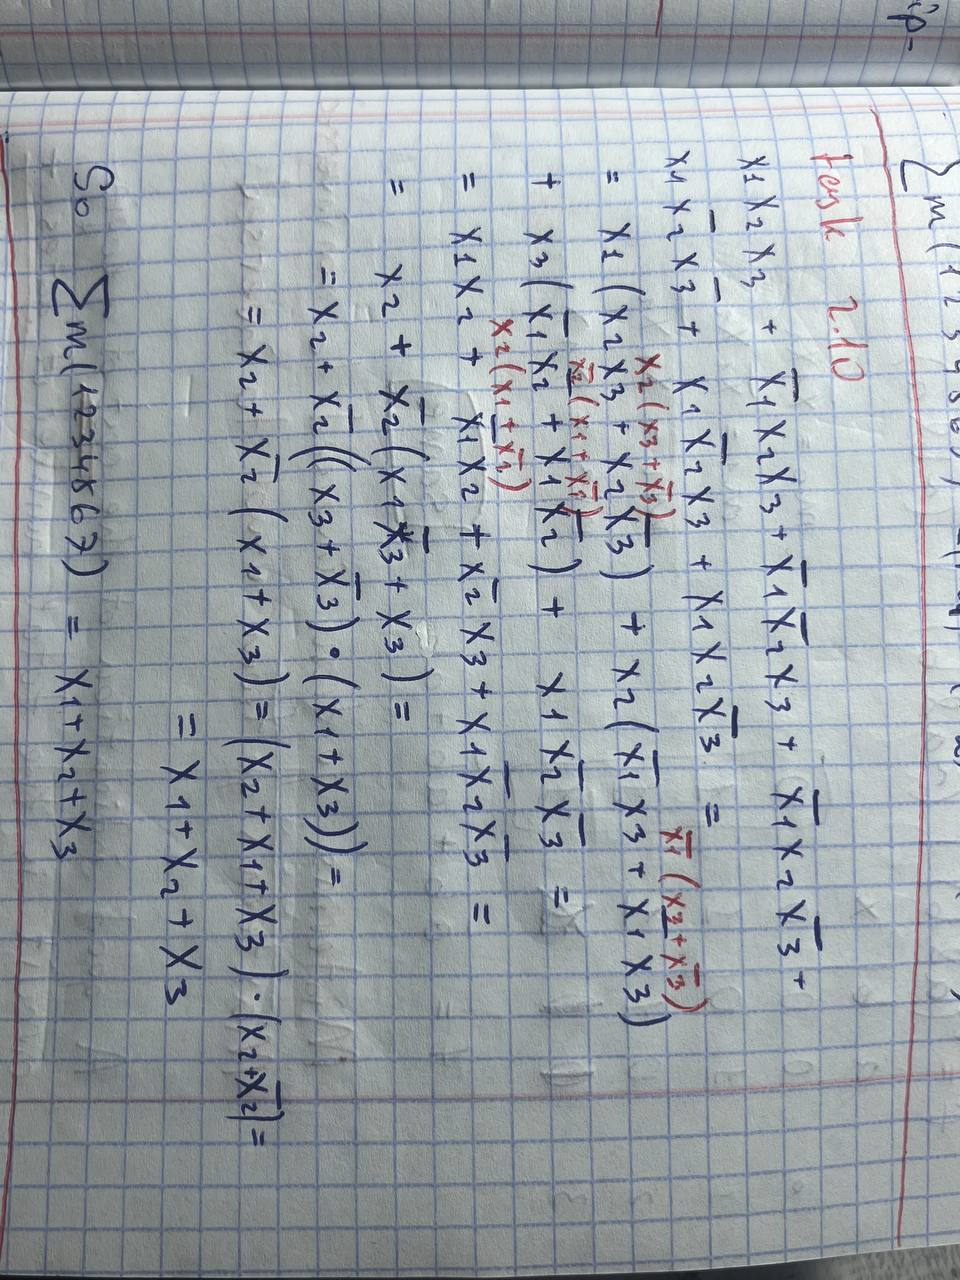 Σm(1 2 3 4 5 6 7)
task 2.10
x1 x2 x3 + x̅1 x2 x3 + x̅1 x̅2 x3 + x̅1 x2 x̅3 +
x1 x̅2 x̅3 + x1 x̅2 x3 + x1 x2 x̅3 =
x2 (x3 + x̅3) x̅1 (x3 + x̅3)
= x1 (x2 x3 + x2 x̅3) + x2 (x̅1 x3 + x1 x3)
x̅2 (x1 + x̅1)
+ x3 (x̅1 x̅2 + x1 x̅2) + x1 x̅2 x̅3 =
x2 (x1 + x̅1)
= x1 x2 + x̅1 x2 + x̅2 x3 + x1 x̅2 x̅3 =
= x2 + x̅2 (x1 x̅3 + x3) =
= x2 + x̅2 ((x3 + x̅3) · (x1 + x3)) =
= x2 + x̅2 (x1 + x3) = (x2 + x1 + x3) · (x2 + x̅2) =
= x1 + x2 + x3
So Σm(1234567) = x1 + x2 + x3